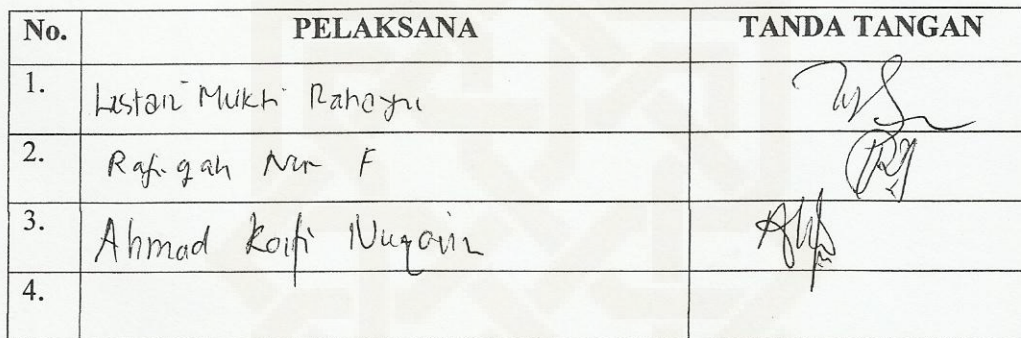 No. PELAKSANA TANDA TANGAN
1. Lestari Mukti Rahayu
2. Rafiqah Nur F
3. Ahmad
4.